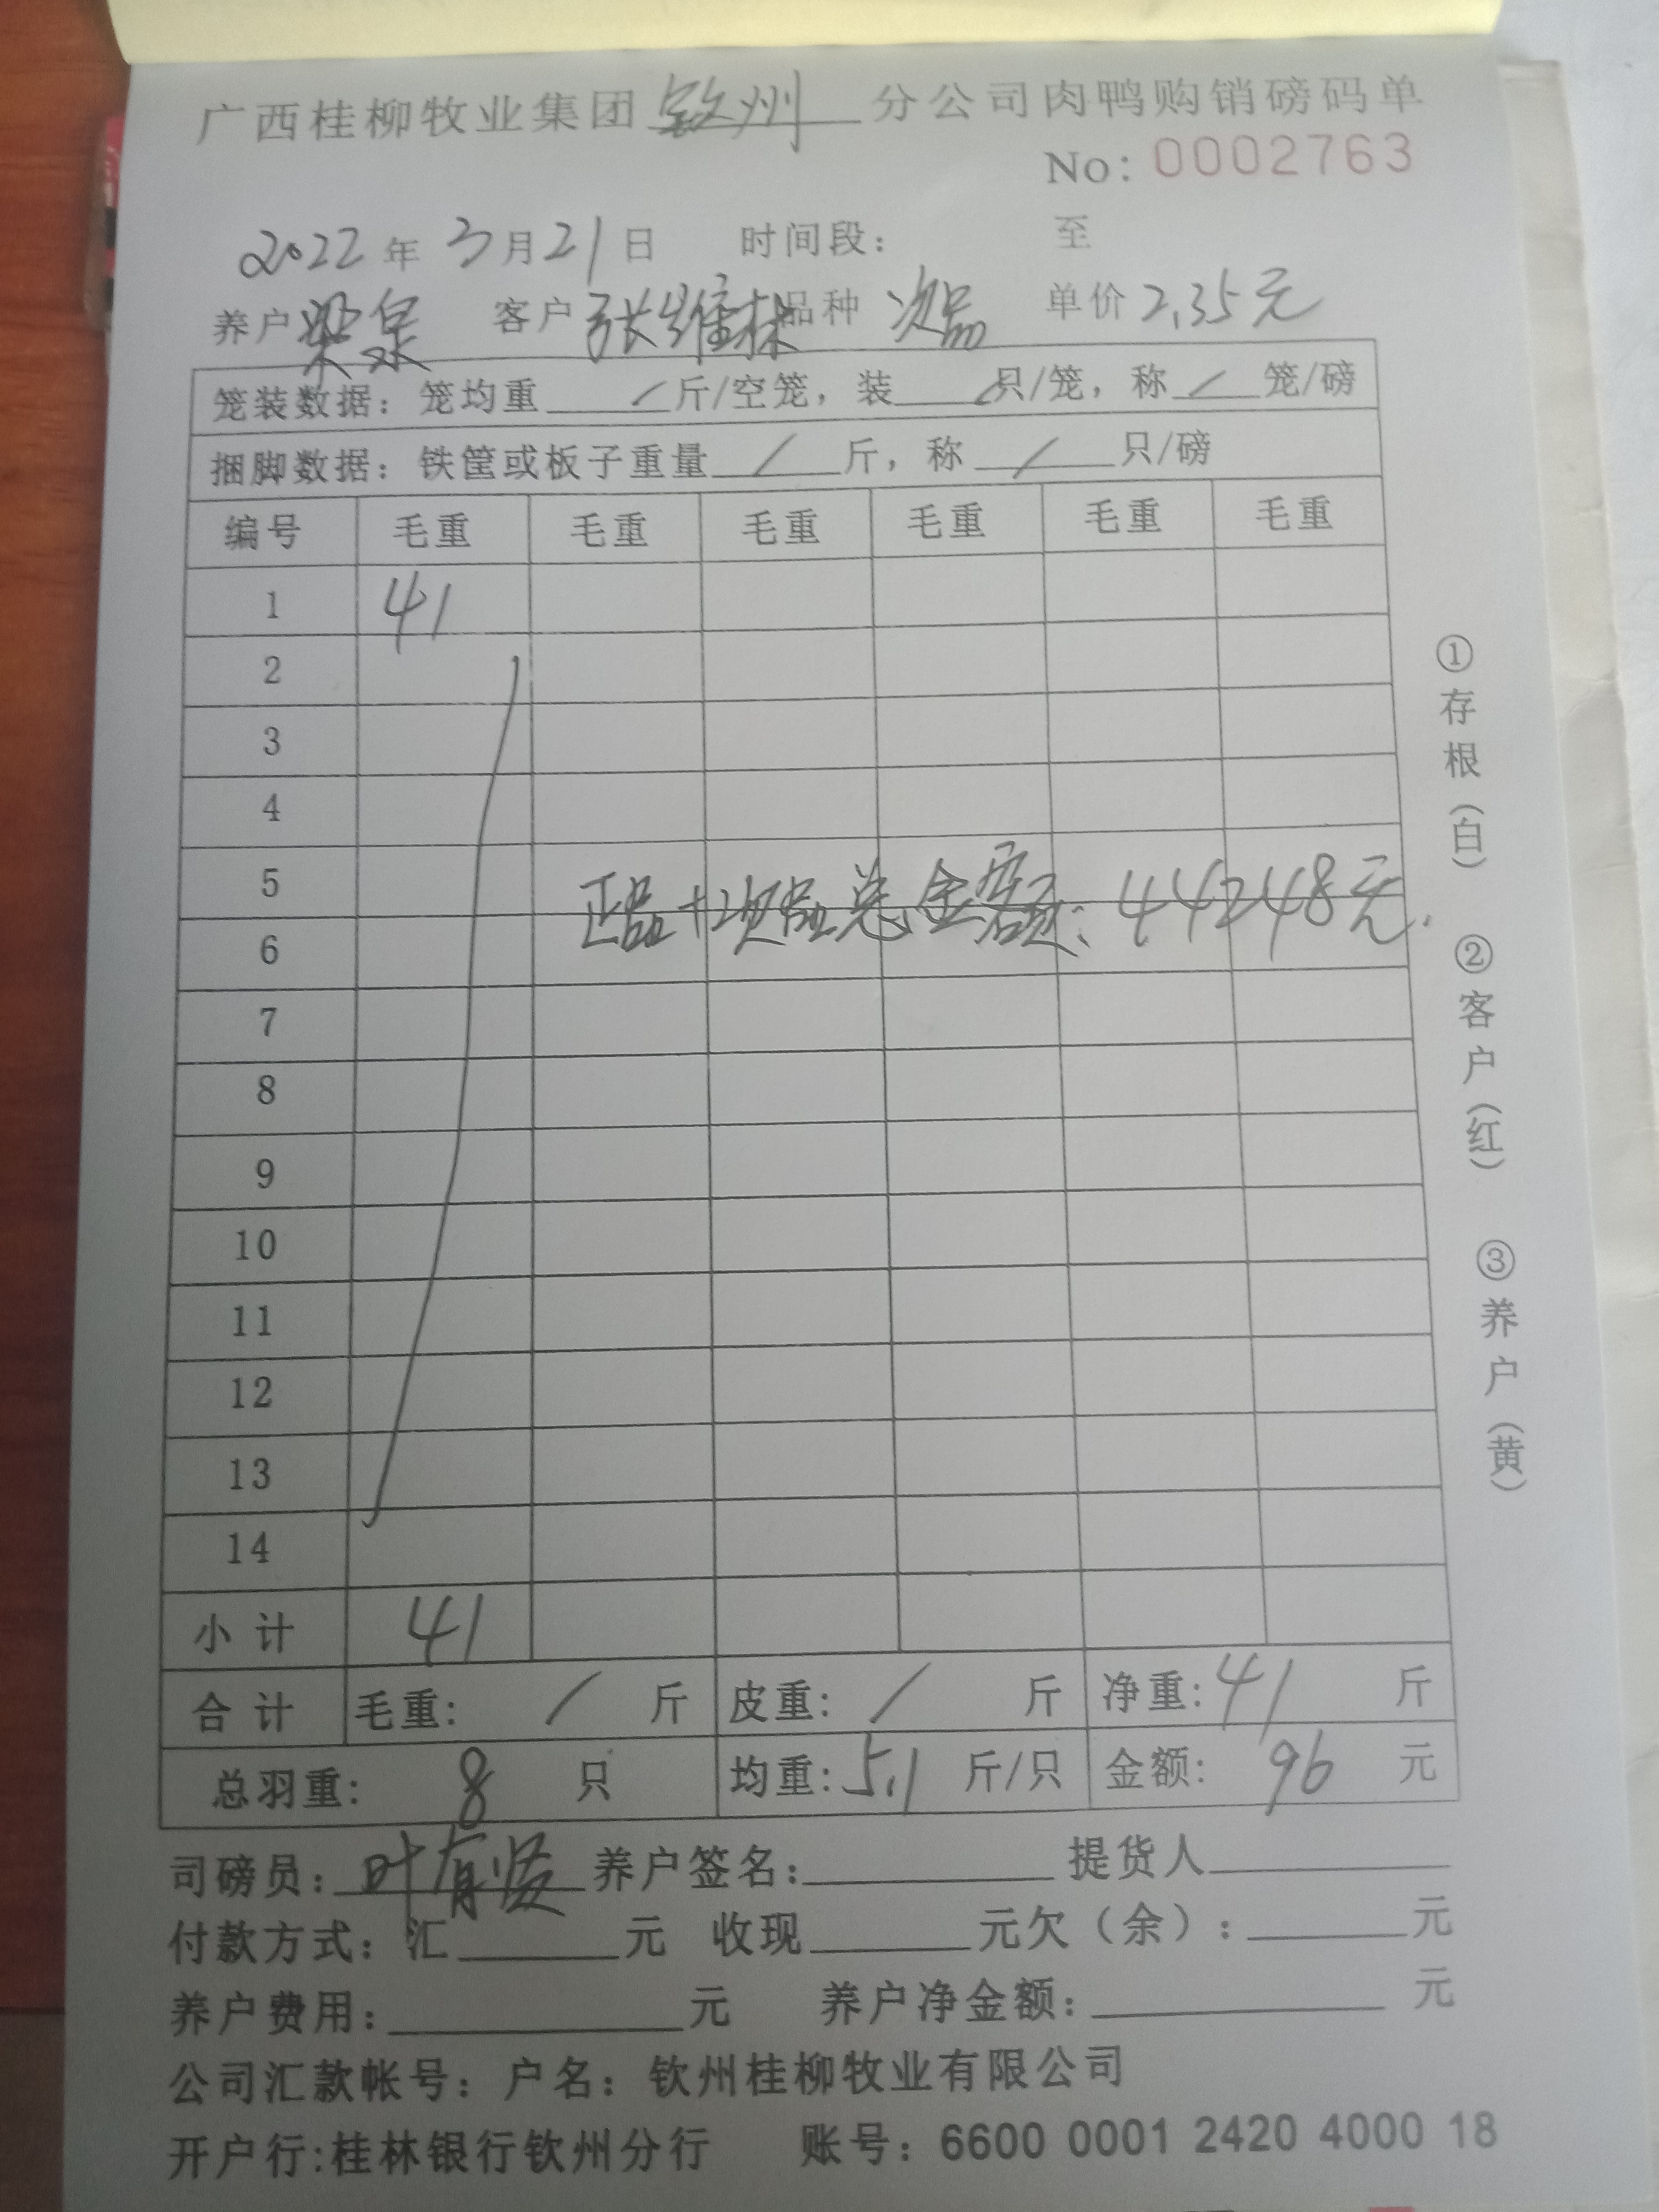 广西桂柳牧业集团钦州分公司肉鸭购销磅码单
No: 0002763
2022年3月21日 时间段: 至
养户梁泉 客户张维林品种 次品 单价2.35元
笼装数据: 笼均重 / 斤/空笼, 装 / 只/笼, 称 / 笼/磅
捆脚数据: 铁筐或板子重量 / 斤, 称 / 只/磅
编号 毛重 毛重 毛重 毛重 毛重 毛重
1 41
2
3
4
5
正品+次品总金额: 44248元.
6
7
8
9
10
11
12
13
14
小计 41
合计 毛重: / 斤 皮重: / 斤 净重: 41 斤
总羽重: 8 只 均重: 5.1 斤/只 金额: 96 元
司磅员: 叶有 养户签名: 提货人
付款方式: 汇 元 收现 元欠(余): 元
养户费用: 元 养户净金额: 元
公司汇款帐号: 户名: 钦州桂柳牧业有限公司
开户行:桂林银行钦州分行 账号: 6600 0001 2420 4000 18
①存根(白) ②客户(红) ③养户(黄)